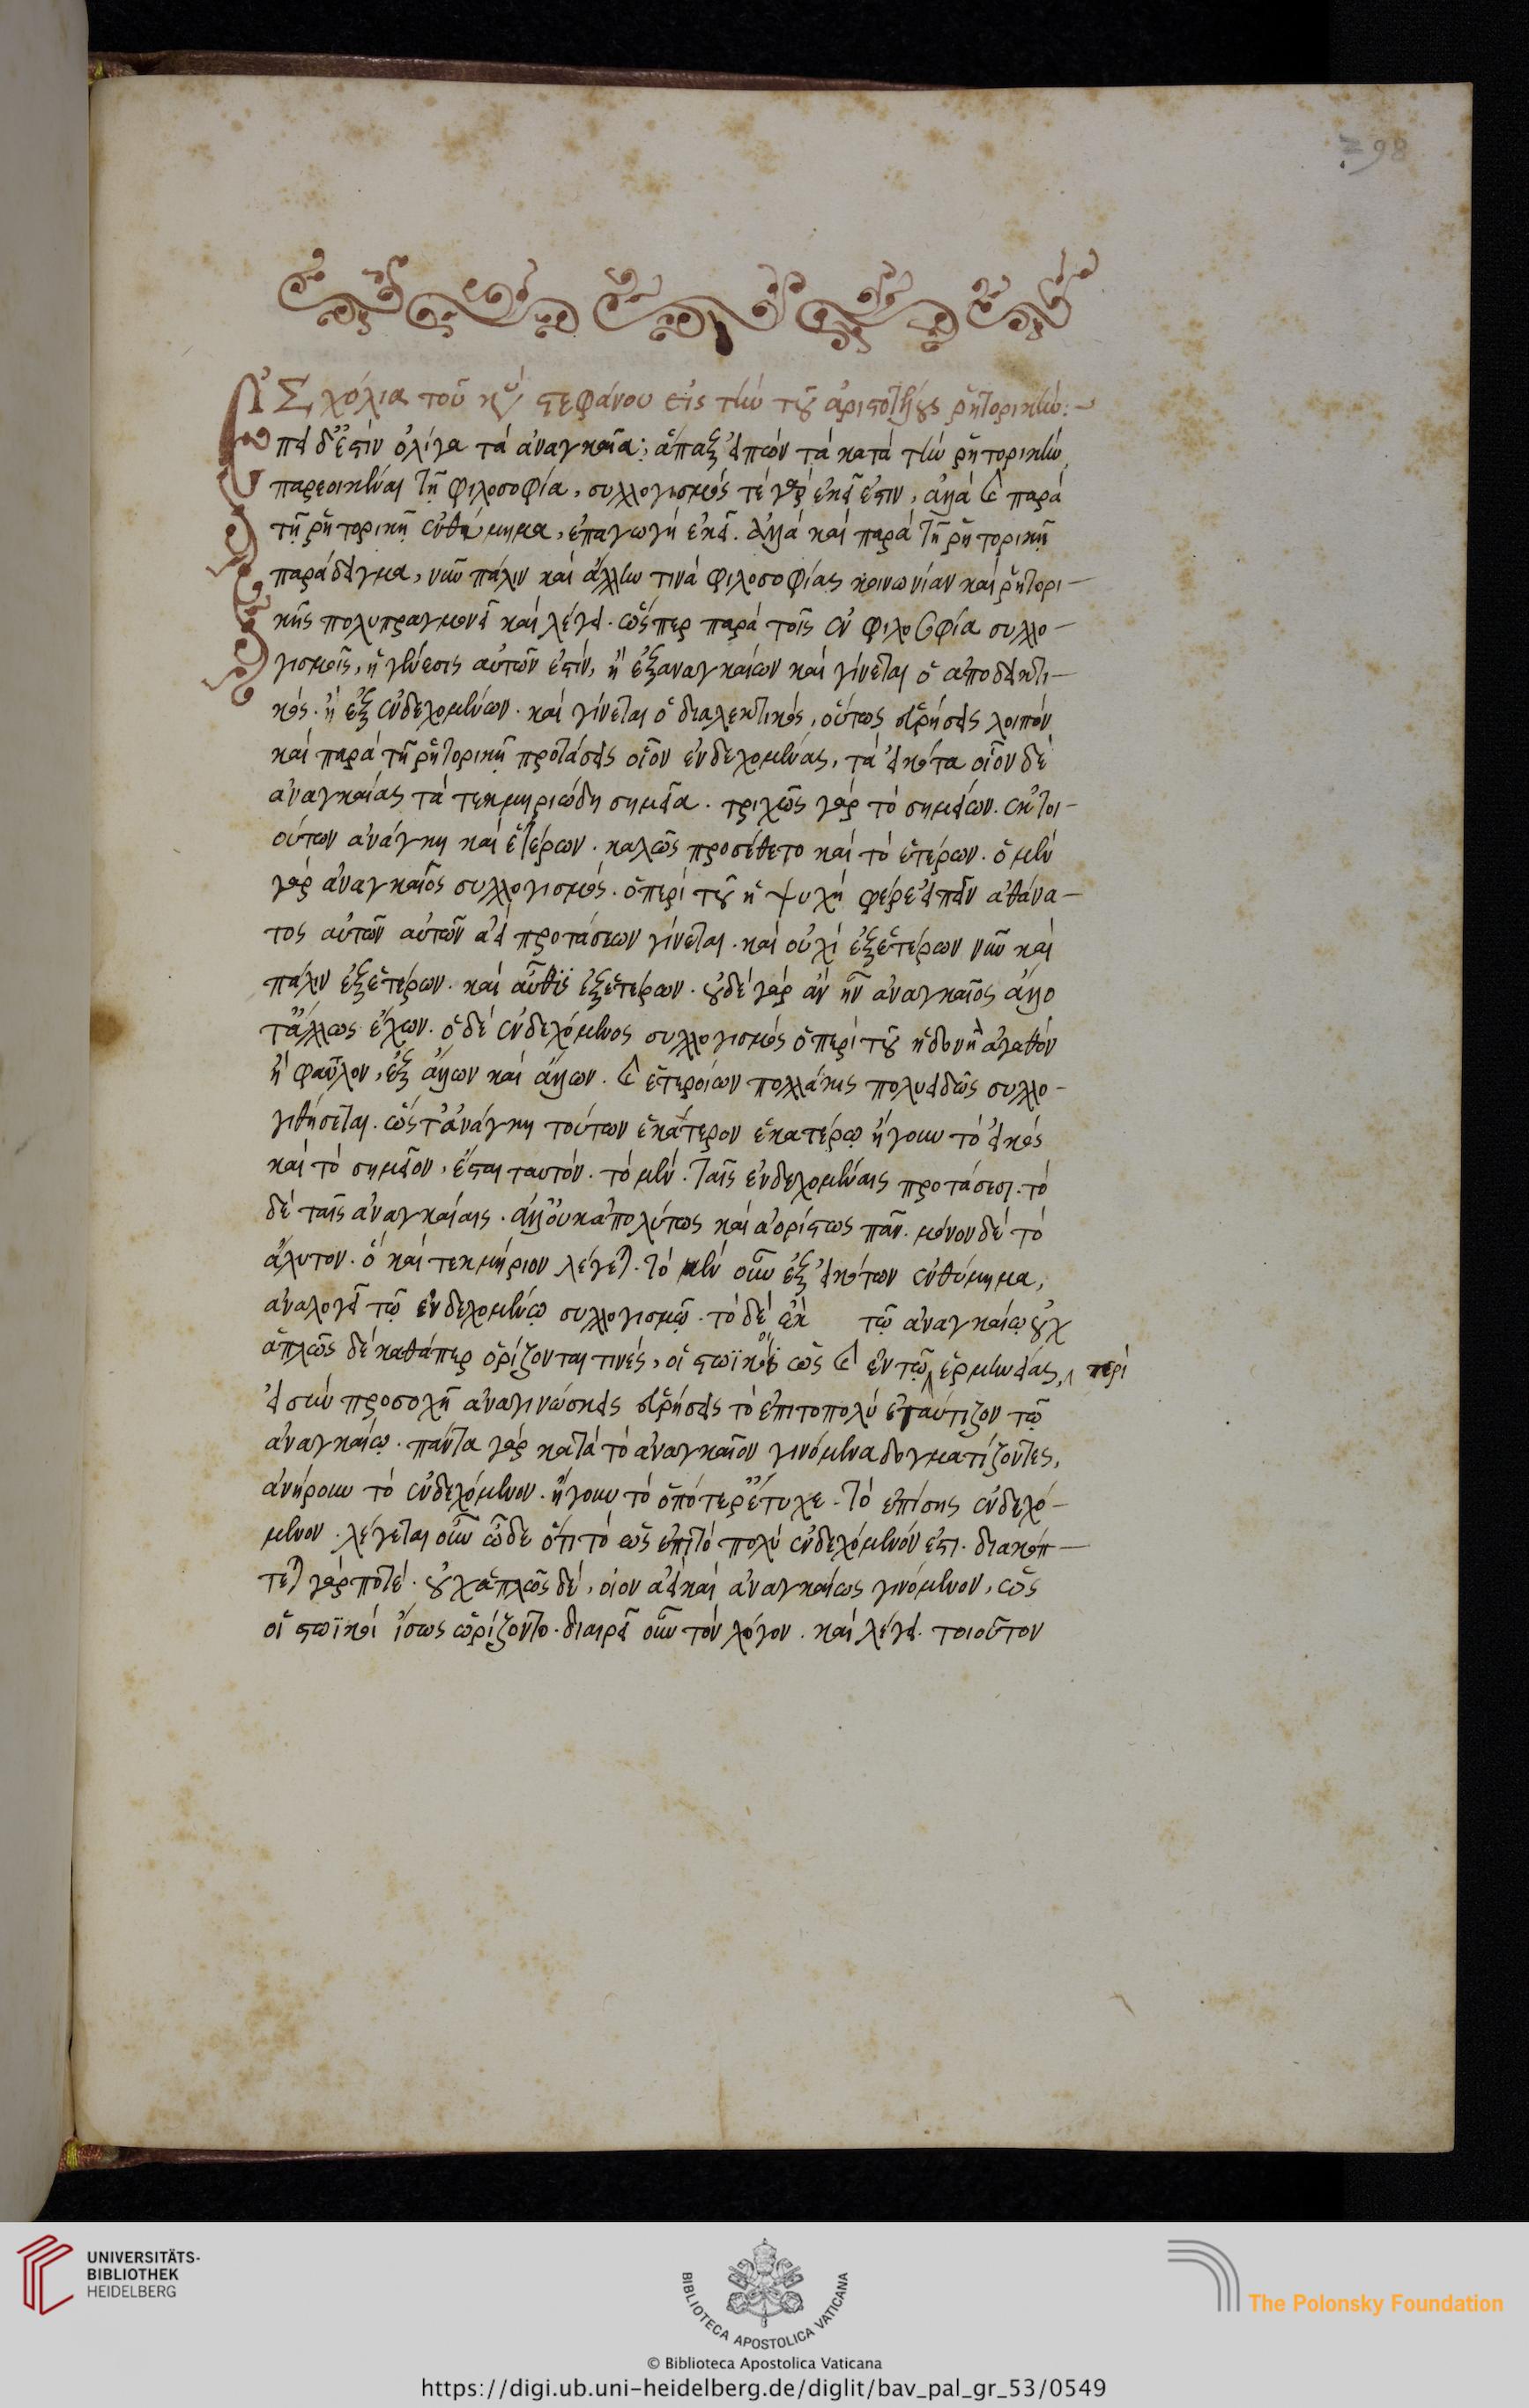 298
Σχόλια τοῦ κυ στεφάνου εἰς τὴν τοῦ ἀριστοτέλους ῥητορικήν :~
Ἐπεὶ δ' ἐστὶν ὀλίγα τὰ ἀναγκαῖα; ἅπαξ εἰπὼν τὰ κατὰ τὴν ῥητορικὴν
παρεοικέναι τῇ φιλοσοφίᾳ, συλλογισμός τὲ γὰρ ἐκεῖ ἐστιν, ἀλλὰ καὶ παρὰ
τῇ ῥητορικῇ ἐνθύμημα, ἐπαγωγὴ ἐκεῖ. ἀλλὰ καὶ παρὰ τῇ ῥητορικῇ
παράδειγμα, νῦν πάλιν καὶ ἄλλην τινὰ φιλοσοφίας κοινωνίαν καὶ ῥητορι-
κῆς πολυπραγμονεῖ καὶ λέγει. ὥσπερ παρὰ τοῖς ἐν φιλοσοφίᾳ συλλο-
γισμοῖς, ἡ γένεσις αὐτῶν ἐστίν, ἢ ἐξαναγκαίων καὶ γίνεται ὁ ἀποδεικτι-
κός. ἢ ἐξ ἐνδεχομένων. καὶ γίνεται ὁ διαλεκτικός, οὕτως εὑρήσεις λοιπὸν
καὶ παρὰ τῇ ῥητορικῇ προτάσεις οἷον ἐνδεχομένας, τὰ εἰκότα οἷον δὲ
ἀναγκαίας τὰ τεκμηριώδη σημεῖα. τριχῶς γὰρ τὸ σημεῖον. ἐκ τοι-
ούτων ἀνάγκη καὶ ἑτέρων. καλῶς προσέθετο καὶ τὸ ἑτέρων. ὁ μὲν
γὰρ ἀναγκαῖος συλλογισμός. ὁ περὶ τοῦ ἡ ψυχὴ φέρε εἰπεῖν ἀθάνα-
τος αὐτῶν αὐτῶν ἀεὶ προτάσεων γίνεται. καὶ οὐχὶ ἐξ ἑτέρων νῦν καὶ
πάλιν ἐξ ἑτέρων. καὶ αὖθις ἐξ ἑτέρων. οὐδὲ γὰρ ἂν ἦν ἀναγκαῖος ἄλλο
τ' ἄλλως ἔχων. ὁ δὲ ἐνδεχόμενος συλλογισμὸς ὁ περὶ τοῦ ἡδονὴ ἀγαθὸν
ἢ φαῦλον, ἐξ ἄλλων καὶ ἄλλων. καὶ ἑτεροίων πολλάκις πολυειδῶς συλλο-
γιθήσεται. ὥς τ' ἀνάγκη τούτων ἑκάτερον ἑκατέρῳ ἤγουν τὸ εἰκὸς
καὶ τὸ σημεῖον, ἔσται ταυτόν. τὸ μὲν. ταῖς ἐνδεχομέναις προτάσεσι. τὸ
δὲ ταῖς ἀναγκαίαις. ἀλλ' οὐκ ἀπολύτως καὶ ἀορίστως πᾶν. μόνον δὲ τὸ
ἄλυτον. ὃ καὶ τεκμήριον λέγεται. τὸ μὲν οὖν ἐξ εἰκότων ἐνθύμημα,
ἀναλογεῖ τῷ ἐνδεχομένῳ συλλογισμῷ. τὸ δὲ ἐκ τῷ ἀναγκαίῳ οὐχ
ἁπλῶς δὲ καθάπερ ὁρίζονται τινές, οἱ στωϊκοὶ ὡς καὶ ἐν τῷ ἑρμηνείας, περὶ
εἰ σὺν προσοχῇ ἀναγινώσκεις εὑρήσεις τὸ ἐπιτοπολὺ ἐταύτιζον τῷ
ἀναγκαίῳ. πάντα γὰρ κατὰ τὸ ἀναγκαῖον γινόμενα δογματίζοντες,
ἀνῄρουν τὸ ἐνδεχόμενον. ἤγουν τὸ ὁπότερ' ἔτυχε. τὸ ἐπίσης ἐνδεχό-
μενον. λέγεται οὖν ὧδε ὅτι τὸ ὡς ἐπιτὸ πολὺ ἐνδεχόμενόν ἐστι. διακόπ-
τεται γὰρ ποτέ. οὐχ ἁπλῶς δέ, οἷον ἀεὶ καὶ ἀναγκαίως γινόμενον, ὡς
οἱ στωϊκοὶ ἴσως ὡρίζοντο. διαιρεῖ οὖν τὸν λόγον. καὶ λέγει. τοιοῦτον
UNIVERSITÄTS-
BIBLIOTHEK
HEIDELBERG
BIBLIOTECA APOSTOLICA VATICANA
The Polonsky Foundation
© Biblioteca Apostolica Vaticana
https://digi.ub.uni-heidelberg.de/diglit/bav_pal_gr_53/0549